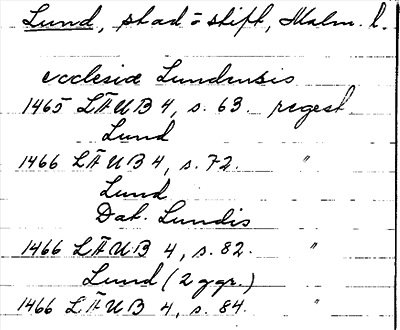 Lund, stad o stift, Malm. l.
ecclesiæ Lundensis
1465 LÄUB 4, s. 63. regest
Lund
1466 LÄUB 4, s. 72. "
Lund
Dat. Lundis
1466 LÄUB 4, s. 82. "
Lund (2 ggr.)
1466 LÄUB 4, s. 84. "